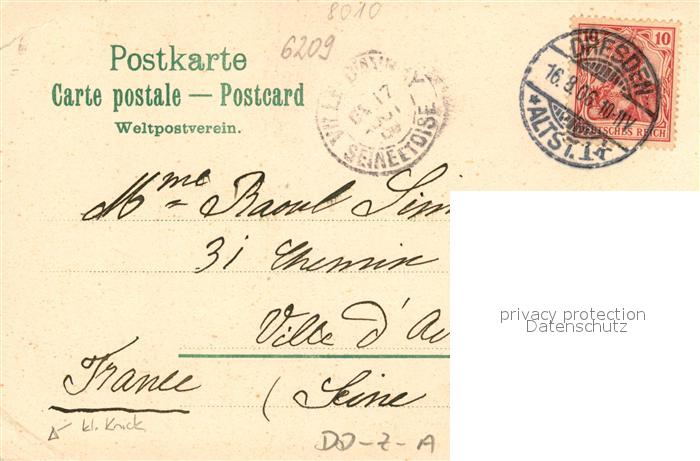 8010
6209
Postkarte
Carte postale — Postcard
Weltpostverein.
SEINE ET OISE
17
10 10
DRESDEN
16.8.06. 10-11V.
* ALTST. 1 k
DEUTSCHES REICH
Mme Raoul
31 Chemin
Ville d'Av
France
(Seine
kl. Knick
DD-Z-A
privacy protection
Datenschutz